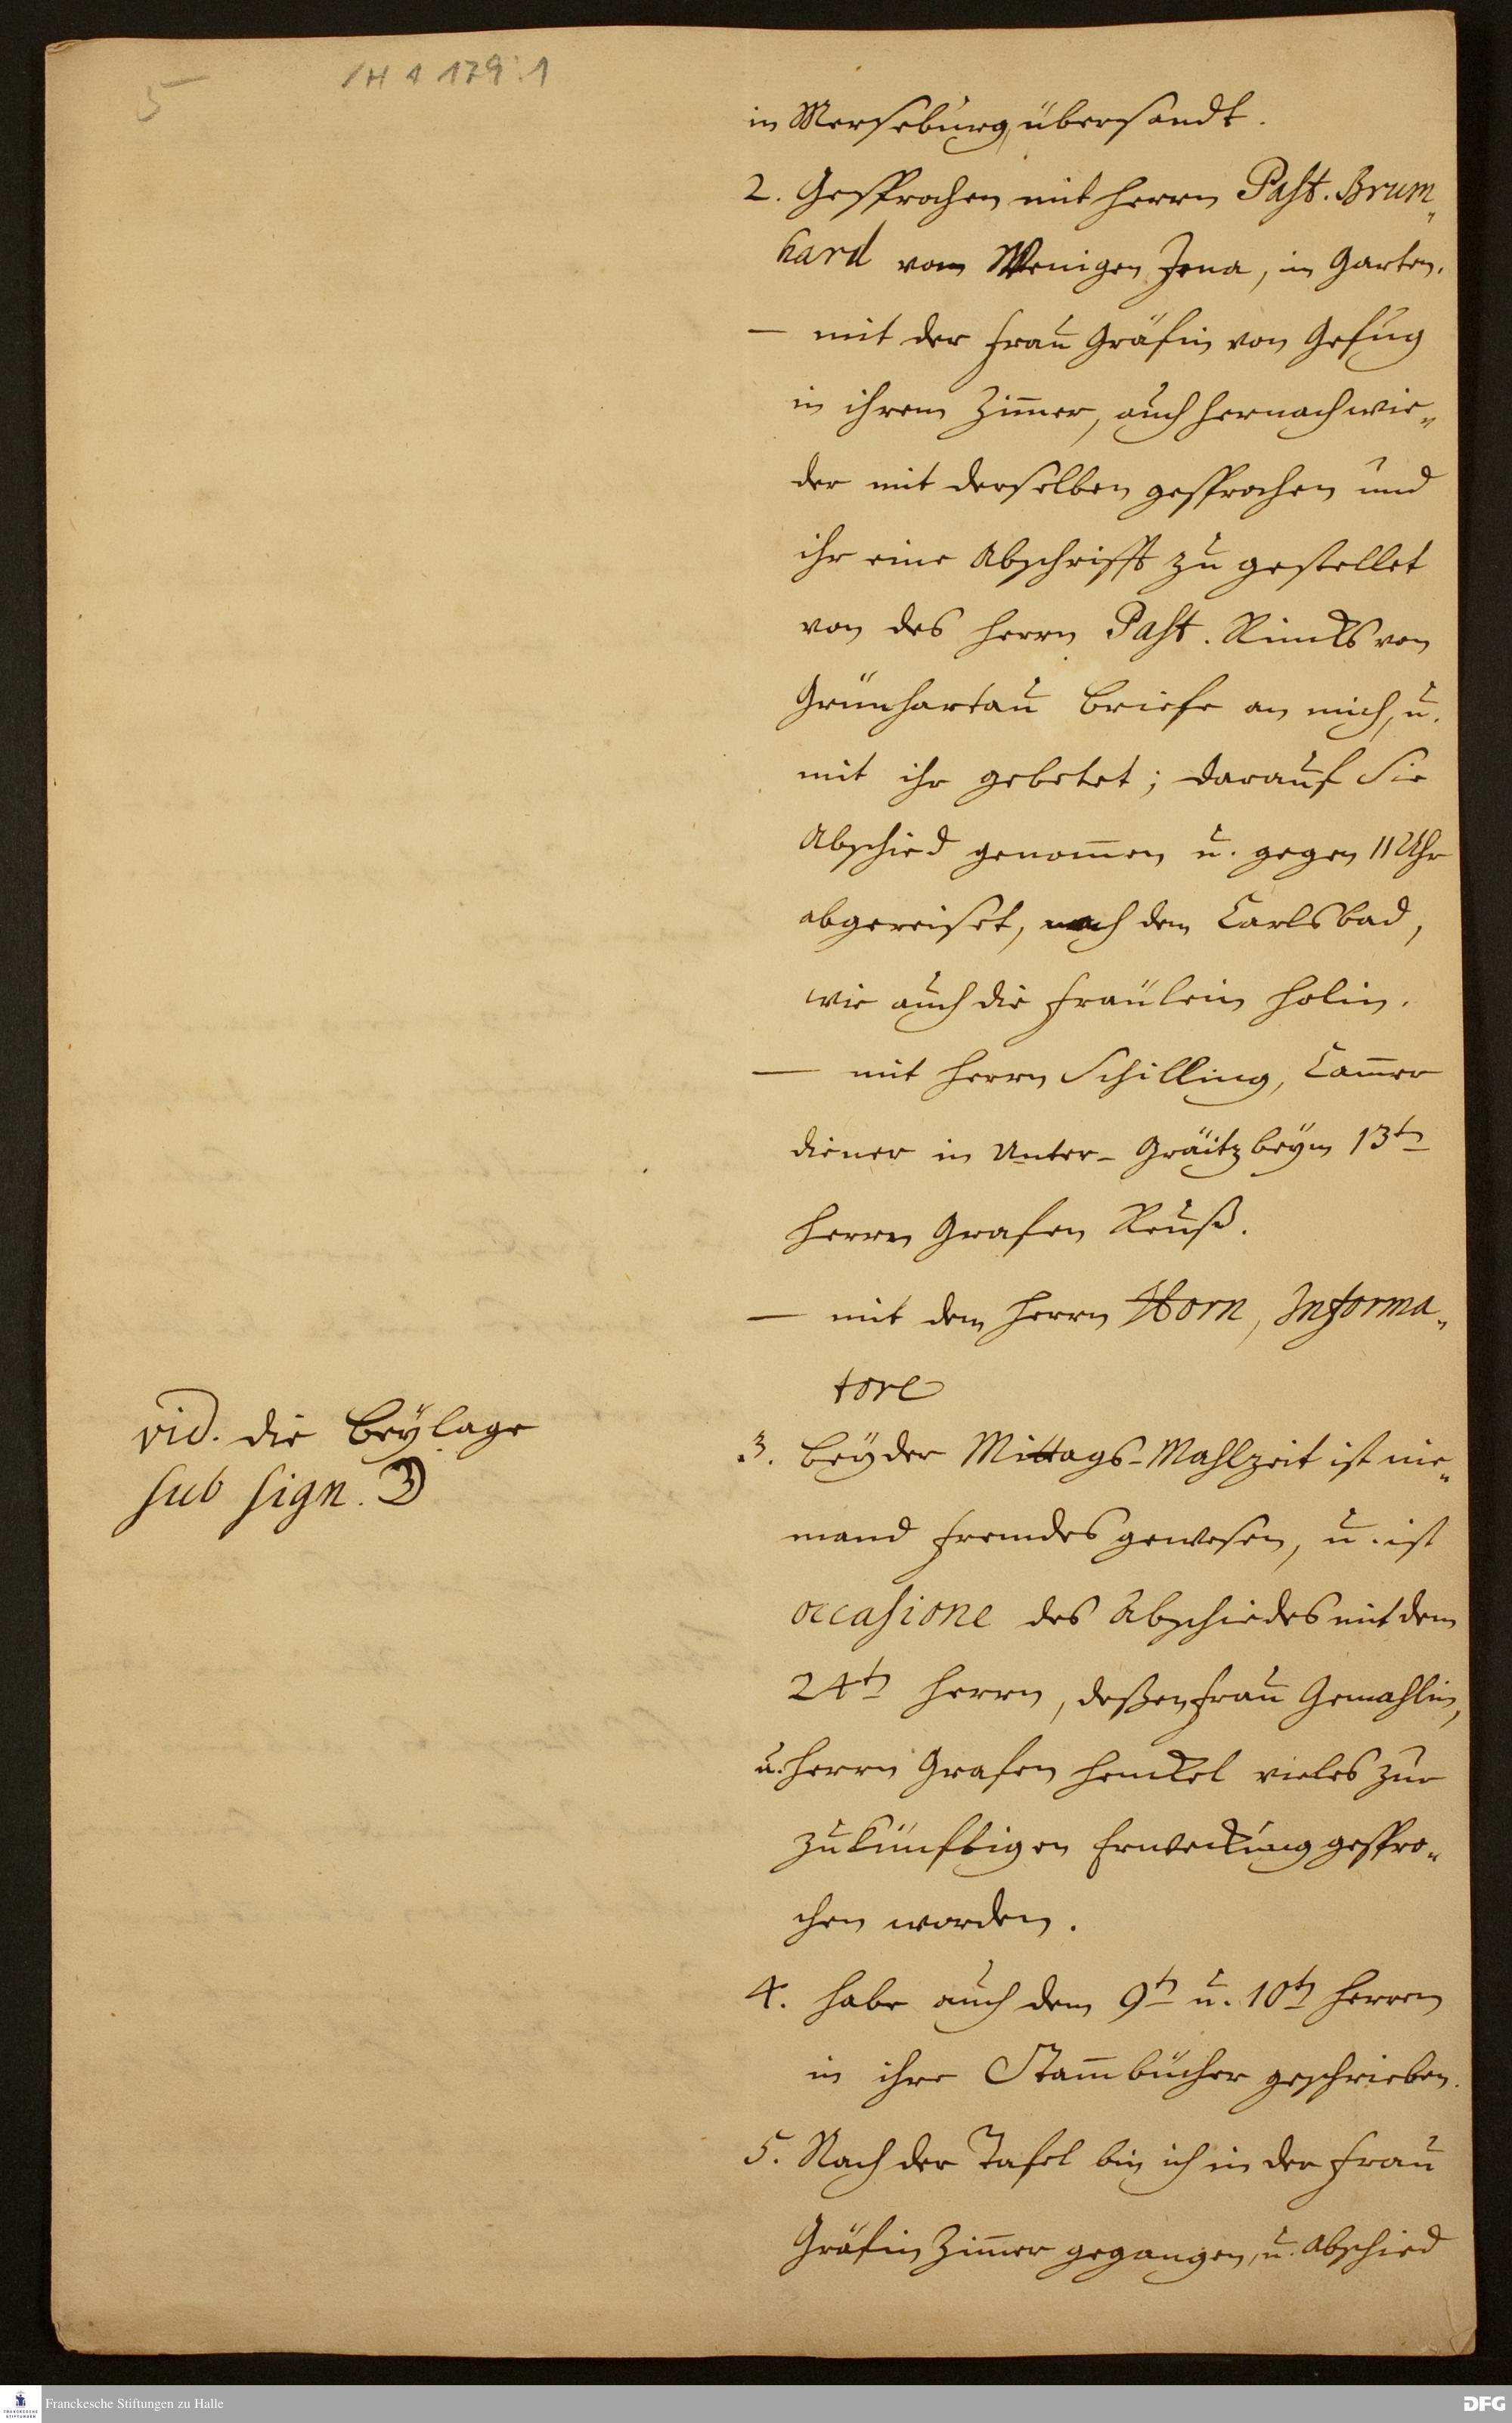 5
/H A 179:1
in Merseburg, übersandt.
2. Gesprochen mit Herrn Past. Brum„
hard von Wenigen Jena, im Garten.
— mit der Frau Gräfin von Gefug
in ihrem Zim̄er, auch hernach wie„
der mit derselben gesprochen und
ihr eine Abschrifft zu gestellet
von des Herrn Past. Rincks von
Grünhartau Briefe an mich, u.
mit ihr gebetet; darauf Sie
Abschied genom̄en u. gegen 11 Uhr
abgereiset, nach dem Carlsbad,
wie auch die Fräulein Holin.
— mit Herrn Schilling, Cam̄er
diener in Unter-Gräitz beym 13tn
Herrn Grafen Reuß.
— mit dem Herrn Horn, Informa„
tore
vid. die Beylage
sub sign. D
3. Bey der Mittags-Mahlzeit ist nie„
mand fremdes gewesen, u. ist
occasione des Abschiedes mit dem
24tn Herrn, deßen Frau Gemahlin,
u. Herrn Grafen Henckel vieles zur
zukünftigen Erweckung gespro„
chen worden.
4. habe auch dem 9tn u. 10tn Herrn
in ihre Stam̄bücher geschrieben.
5. Nach der Tafel bin ich in der Frau
Gräfin Zim̄er gegangen, u. Abschied
FRANCKESCHE STIFTUNGEN
Franckesche Stiftungen zu Halle
DFG